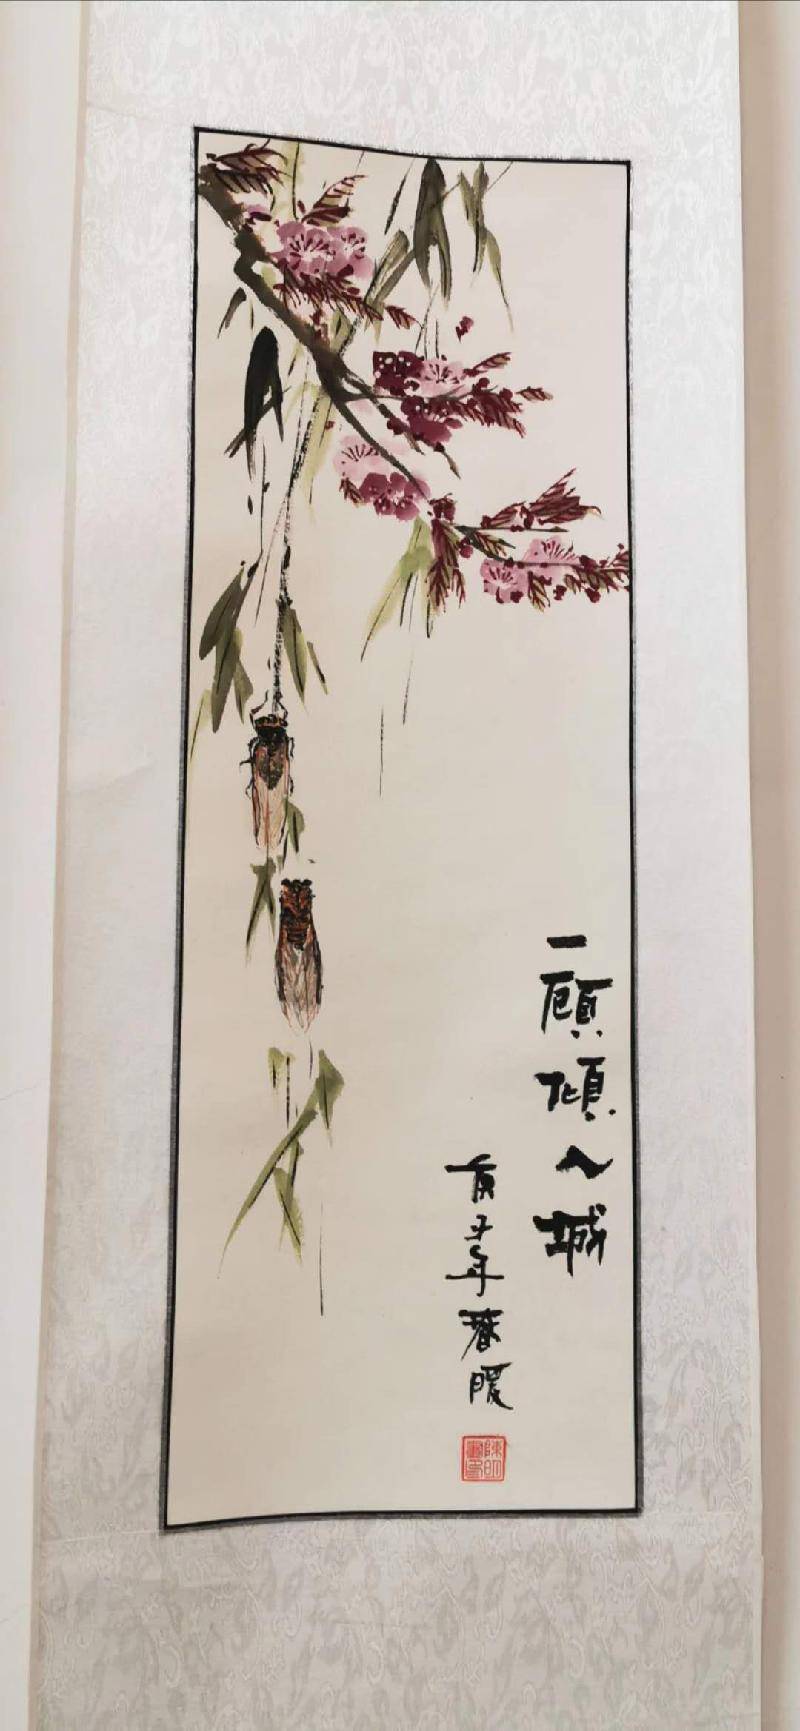 一顾倾人城
庚子年春暖